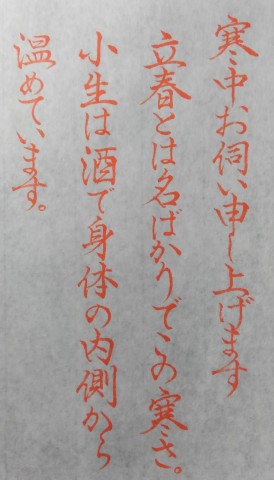 寒中お伺い申し上げます
立春とは名ばかりでこの寒さ。
小生は酒で身体の内側から
温めています。